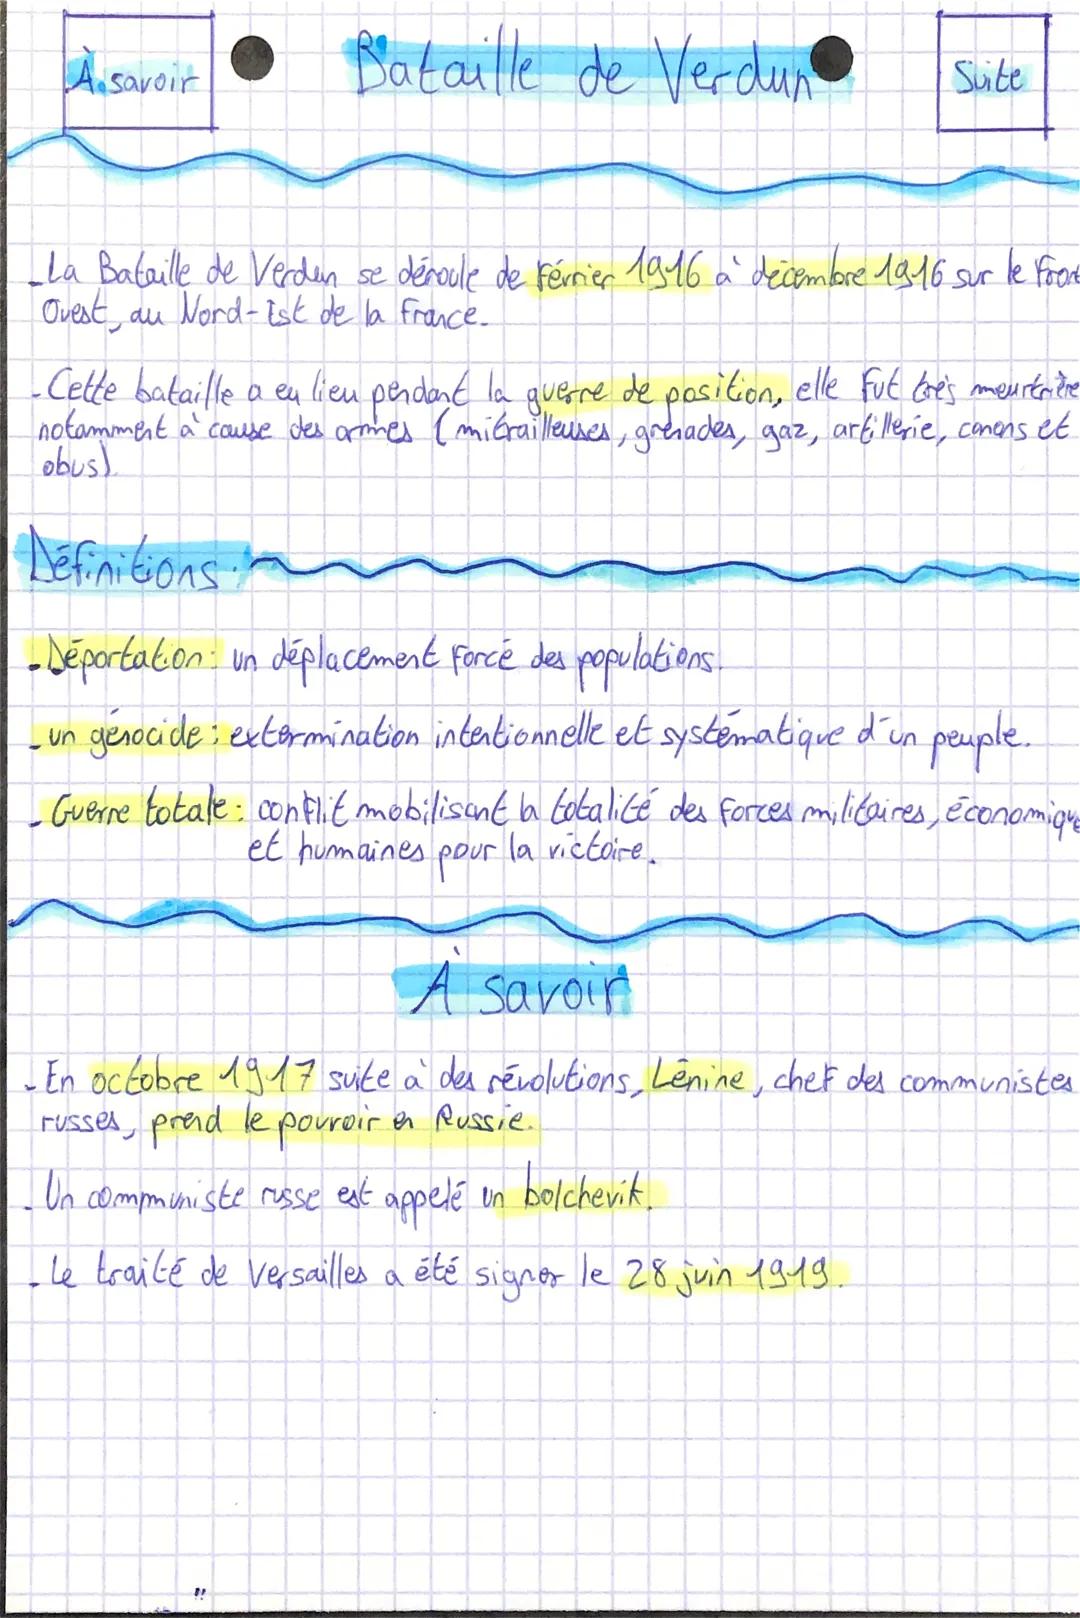 À savoir
Bataille de Verdun
Suite
- La Bataille de Verdun se déroule de février 1916 à décembre 1916 sur le Front
Ouest, au Nord-Est de la France.
- Cette bataille a eu lieu pendant la guerre de position, elle fut très meurtrière
notamment à cause des armes (mitrailleuses, grenades, gaz, artillerie, canons et
obus).
Définitions :
- Déportation : un déplacement forcé des populations.
- un génocide : extermination intentionnelle et systématique d'un peuple.
- Guerre totale : conflit mobilisant la totalité des forces militaires, économique
et humaines pour la victoire.
À savoir
- En octobre 1917 suite à des révolutions, Lénine, chef des communistes
russes, prend le pouvoir en Russie.
- Un communiste russe est appelé un bolchevik.
- Le traité de Versailles a été signer le 28 juin 1919.